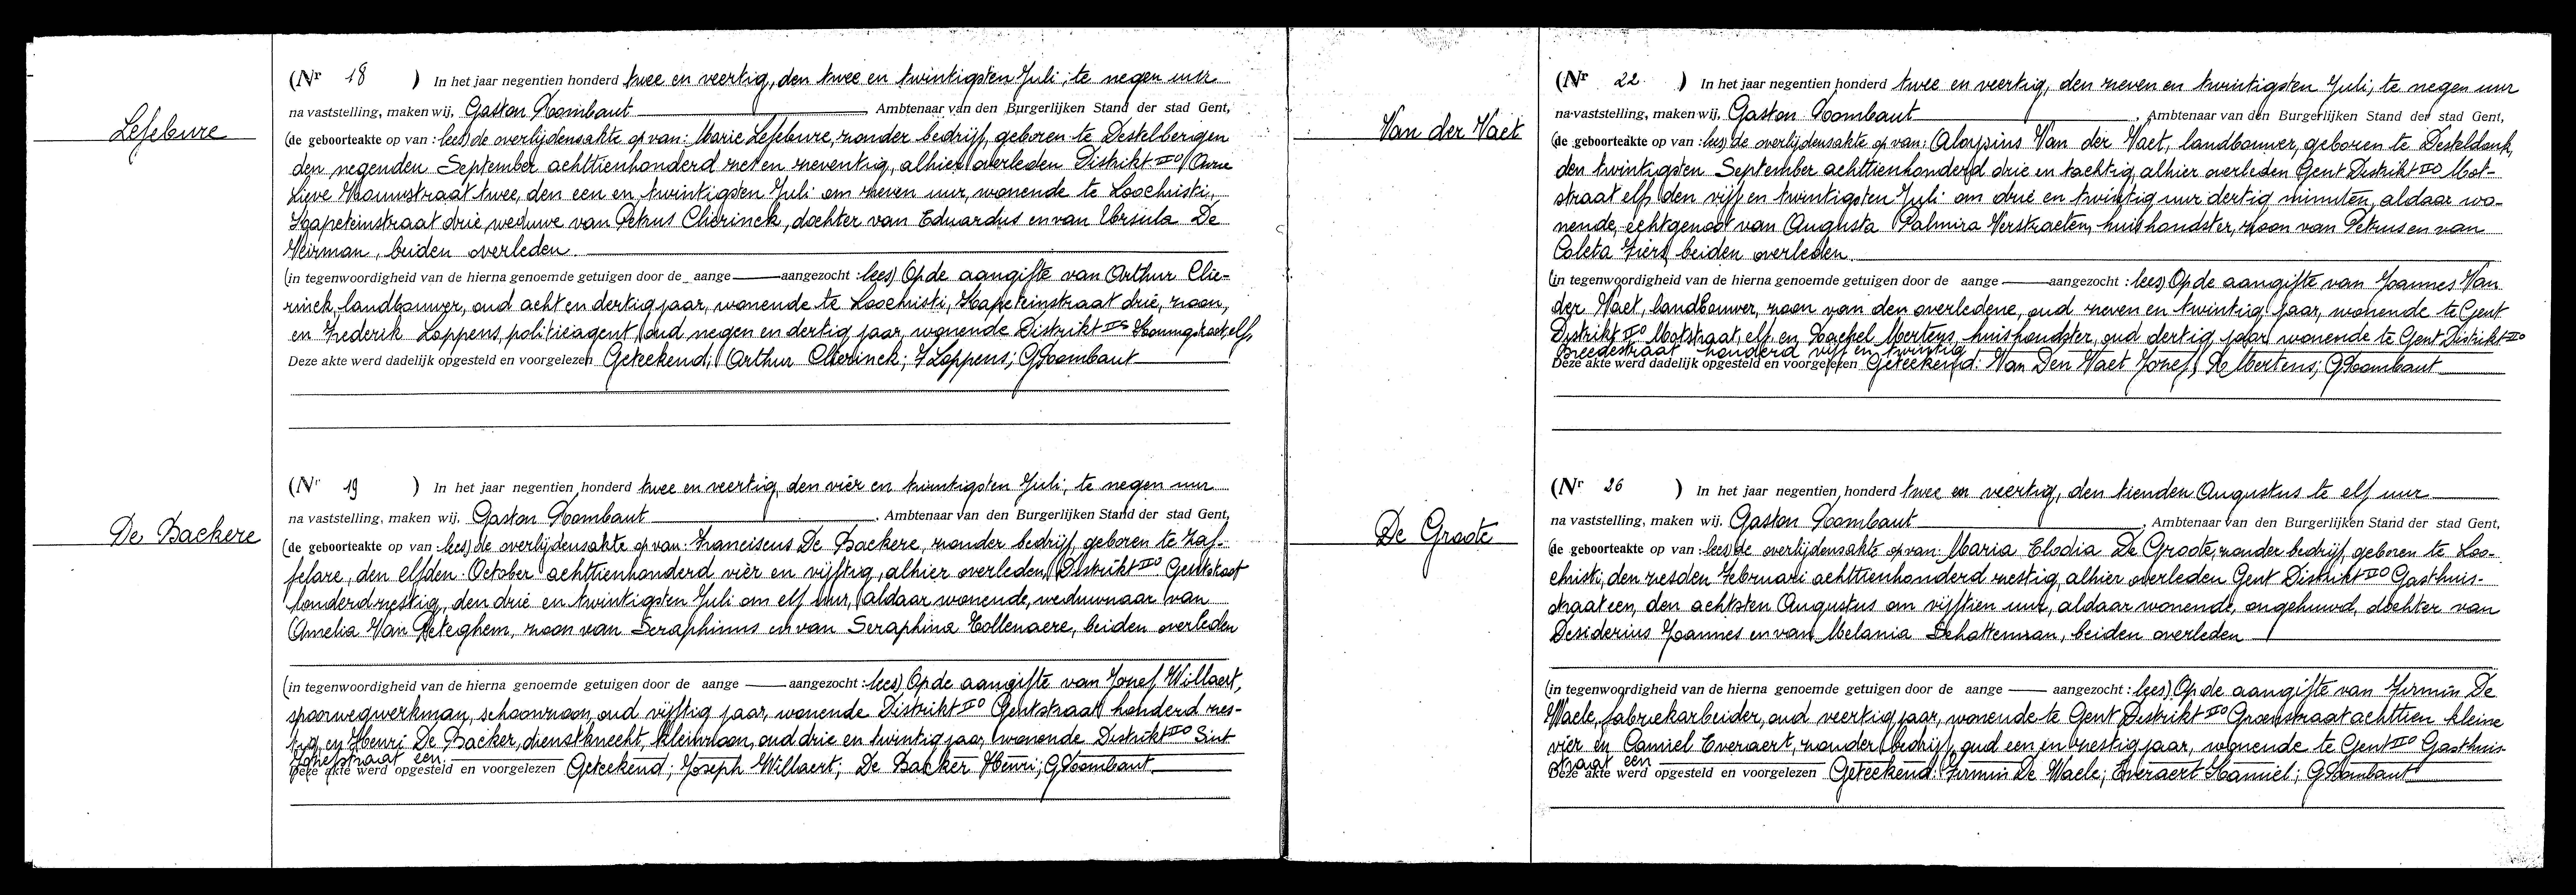 Lefebure
(Nr 18 ) In het jaar negentien honderd twee en veertig, den twee en twintigsten Juli, te negen uur
na vaststelling, maken wij, Gaston Rombaut Ambtenaar van den Burgerlijken Stand der stad Gent,
(de geboorteakte op van : lees) de overlijdensakte op van: Marie Lefebure, zonder bedrijf, geboren te Destelbergen
den negenden September achttienhonderd zes en zeventig, alhier overleden Distrikt IIO
Lieve twee, den een en twintigsten Juli om zeven uur, wonende te Loochristi,
drie, weduwe van Petrus Clierinck, dochter van Eduardus en van Ursula De
Weirman, beiden overleden
(in tegenwoordigheid van de hierna genoemde getuigen door de aange aangezocht : lees) Op de aangifte van Arthur Clie-
rinck, landbouwer, oud acht en dertig jaar, wonende te Loochristi, drie, zoon,
en Frederik Loppens, politieagent, oud negen en dertig jaar, wonende Distrikt IIO elf,
Deze akte werd dadelijk opgesteld en voorgelezen Geteekend; Arthur Clierinck; F Loppens; G Rombaut
De Backere
(Nr 19 ) In het jaar negentien honderd twee en veertig, den vier en twintigsten Juli, te negen uur
na vaststelling, maken wij, Gaston Rombaut Ambtenaar van den Burgerlijken Stand der stad Gent,
(de geboorteakte op van : lees) de overlijdensakte op van: Franciscus De Backere, zonder bedrijf, geboren te Zaf-
felare, den elfden October achttienhonderd vier en vijftig, alhier overleden, Distrikt IIO Gentstraat
honderd zestig, den drie en twintigsten Juli om elf uur, aldaar wonende, weduwnaar van
Amelia Van Peteghem, zoon van Seraphinus en van Seraphina Collenaere, beiden overleden
(in tegenwoordigheid van de hierna genoemde getuigen door de aange aangezocht : lees) Op de aangifte van Jozef Willaert,
spoorwegwerkman, schoonzoon, oud vijftig jaar, wonende Distrikt IIO Gentstraat honderd zes-
tig, en Henri De Backer, dienstknecht, kleinzoon, oud drie en twintig jaar, wonende Distrikt IIO Sint
Jozefstraat een.
Deze akte werd opgesteld en voorgelezen Geteekend; Joseph Willaert; De Backer Henri; G Rombaut
Van der Vaet
(Nr 22. ) In het jaar negentien honderd twee en veertig, den zeven en twintigsten Juli, te negen uur
na vaststelling, maken wij, Gaston Rombaut , Ambtenaar van den Burgerlijken Stand der stad Gent,
(de geboorteakte op van : lees) de overlijdensakte op van: Aloysius Van der Vaet, landbouwer, geboren te Desteldonk,
den twintigsten September achttienhonderd drie en tachtig, alhier overleden Gent Distrikt IIO Mot-
straat elf, den vijf en twintigsten Juli om drie en twintig uur dertig minuten, aldaar wo-
nende, echtgenoot van Augusta Palmira Verstraeten, huishoudster, zoon van Petrus en van
Coleta Fiers, beiden overleden.
(in tegenwoordigheid van de hierna genoemde getuigen door de aange aangezocht : lees) Op de aangifte van Joannes Van
der Vaet, landbouwer, zoon van den overledene, oud zeven en twintig jaar, wonende te Gent
Distrikt IIO Motstraat, elf, en Rachel Mertens, huishoudster, oud dertig jaar, wonende te Gent Distrikt IIO
Breedestraat honderd vijf en twintig
Deze akte werd dadelijk opgesteld en voorgelezen Geteekend: Van Den Vaet Jozef; R Mertens; G Rombaut
De Groote
(Nr 26 ) In het jaar negentien honderd twee en veertig, den tienden Augustus te elf uur
na vaststelling, maken wij. Gaston Rombaut , Ambtenaar van den Burgerlijken Stand der stad Gent,
(de geboorteakte op van : lees) de overlijdensakte op van: Maria Elodia De Groote, zonder bedrijf, geboren te Loo-
christi, den zesden Februari achttienhonderd zestig, alhier overleden Gent Distrikt IIO Gasthuis-
straat een, den achtsten Augustus om vijftien uur, aldaar wonende, ongehuwd, dochter van
Desiderius Joannes en van Melania Schatteman, beiden overleden
(in tegenwoordigheid van de hierna genoemde getuigen door de aange aangezocht : lees) Op de aangifte van Firmin De
Waele, fabriekarbeider, oud veertig jaar, wonende te Gent Distrikt IIO Groenstraat achttien kleine
vier en Camiel Everaert, zonder bedrijf, oud een en zestig jaar, wonende te Gent IIO Gasthuis-
straat een
Deze akte werd opgesteld en voorgelezen Geteekend: Firmin De Waele; Everaert Kamiel; G Rombaut